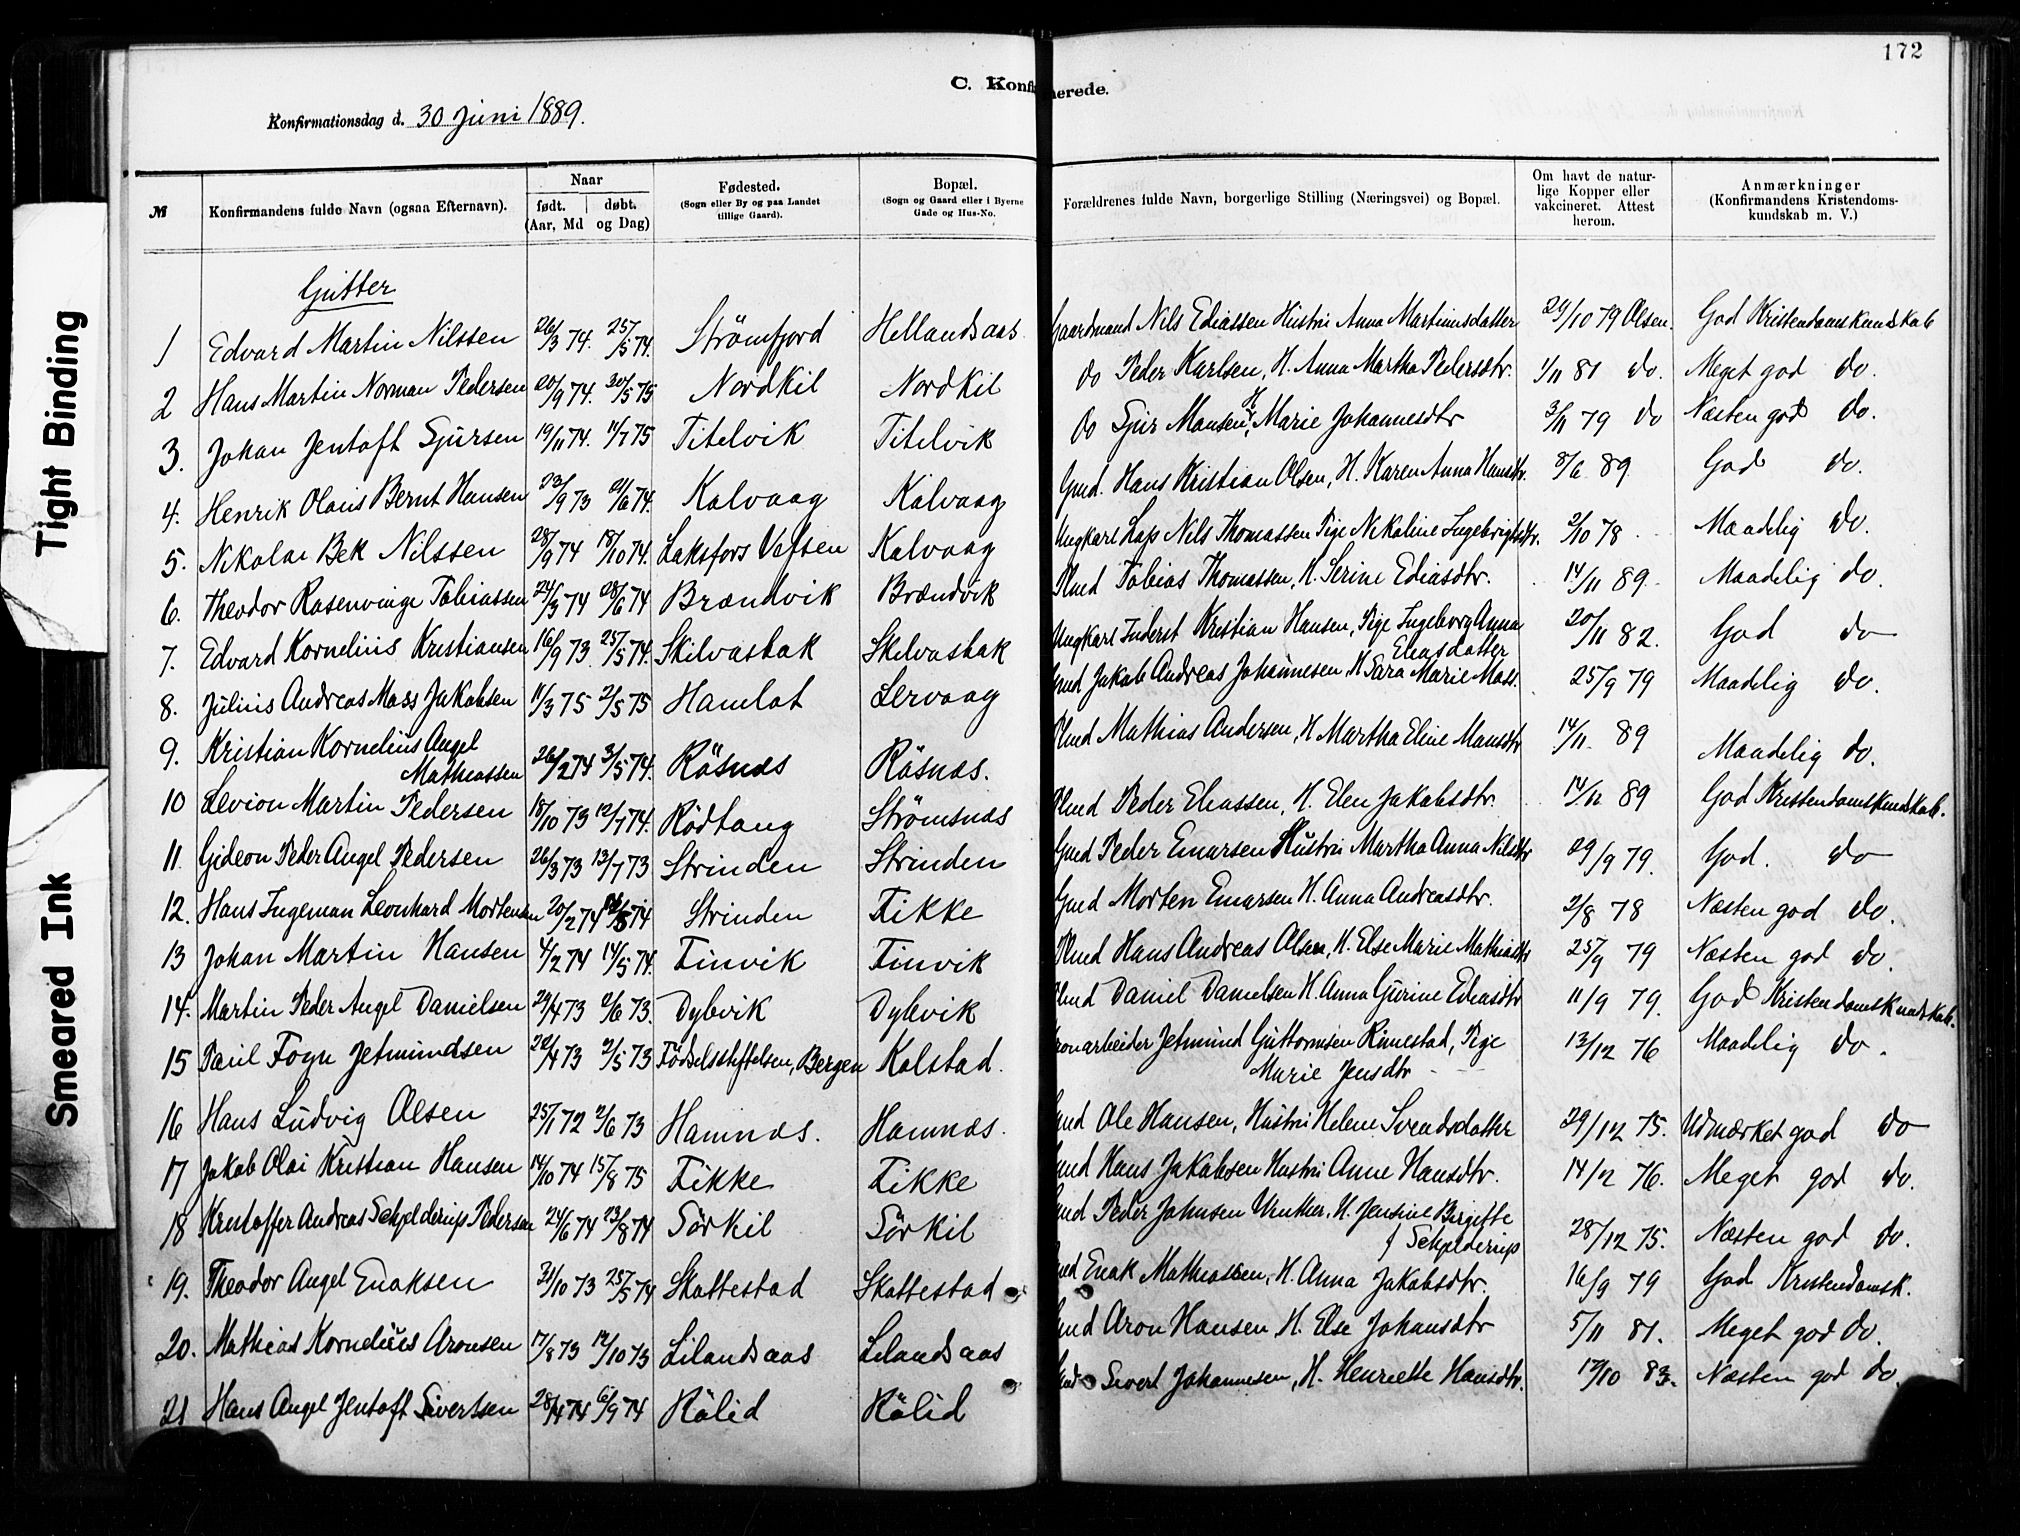 172
C. Konfirmerede.
Konfirmationsdag d. 30 Juni 1889.
Tight Binding
Smeared Ink
№ | Konfirmandens fulde Navn (ogsaa Efternavn). | Naar født. døbt. (Aar, Md og Dag) | Fødested. (Sogn eller By og paa Landet tillige Gaard). | Bopæl. (Sogn og Gaard eller i Byerne Gade og Hus-No. | Forældrenes fulde Navn, borgerlige Stilling (Næringsvei) og Bopæl. | Om havt de naturlige Kopper eller vakcineret. Attest herom. | Anmærkninger (Konfirmandens Kristendomskundskab m. V.)
Gutter
1 Edvard Martin Nilssen 26/3 74. 25/5 74. Strömfjord Hellandsaas Gaardmand Nils Ediassen Hustru Anna Martinusdatter 29/10 79 Olsen. God Kristendomskundskab
2 Hans Martin Norman Pedersen 20/9 74. 30/5 75 Nordkil Nordkil do Peder Karlsen, H. Anna Martha Pedersdtr. 1/11 81 do. Meget god do.
3. Johan Jentoft Sjursen 19/11 74. 11/7 75 Titelvik Titelvik do Sjur Monsen, H. Marie Johannesdtr 3/11 79 do Næsten god do.
4. Henrik Olaus Bernt Hansen 23/9 73 21/6 74. Kalvaag Kalvaag Gmd. Hans Kristian Olsen, H. Karen Anna Hansdtr. 8/6 89 God do.
5. Nikolai Bek Nilssen 28/9 74 18/10 74. Laksfors Vefsen Kalvaag Ungkarl Lap Nils Thomassen Pige Nikoline Ingebrigtsdtr. 2/10 78 Maadelig do.
6. Theodor Rosenvinge Tobiassen 24/3 74 28/6 74 Brændvik Brændvik Plmd Tobias Thomassen, H. Serine Ediasdtr. 14/11 89. Maadelig do.
7. Edvard Kornelius Kristiansen 16/9 73. 25/5 74. Skilvasbak Skilvasbak Ungkarl Inderst Kristian Hansen, Pige Ingeborg Anna Eliasdatter 20/11 82. God do
8. Julius Andreas Moss Jakobsen 11/3 75 2/5 75 Hamlot Lervaag Gmd Jakob Andreas Johannesen, H Sara Marie Moss. 25/9 79 Maadelig do.
9. Kristian Kornelius Angel Mathiassen 26/2 74 3/5 74. Råsnæs Råsnæs. Plmd Mathias Andersen, H Martha Eline Monsdtr 14/11. 89 Maadelig do.
10 Levion Martin Pedersen 18/10 73 12/7 74. Rödtang Strömsnæs Plmd Peder Eliassen, H. Elen Jakobsdtr. 14/11 89 God Kristendomskundskab.
11. Gideon Peder Angel Pedersen 26/3 73 13/7 73 Strinden Strinden Gmd Peder Enarsen Hustru Martha Anna Nilsdtr 29/9 79. God. do
12. Hans Ingeman Leonhard Mortensen 20/2 74 /5 74 Strinden Fikke Gmd Morten Enarsen H. Anna Andreasdtr. 2/8 78 Næsten god do.
13 Johan Martin Hansen 4/2 74 14/5 74. Finvik Finvik Plmd Hans Andreas Olsen, H. Else Marie Mathiasdtr 25/9 79 Næsten god do.
14. Martin Peder Angel Danielsen 29/4 73 2/6 73. Dybvik Dybvik Plmd Daniel Danielsen H. Anna Gurine Ediasdtr 11/9 79. God Kristendomskundskab.
15 Paul Fogn Jetmundsen 22/4 73 2/5 73 Födselsstiftelsen, Bergen Kalstad. arbeider Jetmund Guttormsen Rinnestad, Pige Marie Jensdtr 13/12 76 Maadelig do.
16 Hans Ludvig Olsen 25/1 72 2/6 73 Hamnæs. Hamnæs. Gmd Ole Hansen, Hustru Helene Svendsdatter 29/12 75. Udmærket god do
17 Jakob Olai Kristian Hansen 14/10 74 15/8 75 Fikke Fikke Gmd Hans Jakobsen Hustru Anne Hansdtr. 14/12 76. Meget god do.
18 Kristoffer Andreas Schjelderup Pedersen 24/6 74 23/8 74 Sörkil Sörkil Gmd Peder Johnsen Winther, H. Jensine Birgitte f Schjelderup 28/12 75. Næsten god do.
19. Theodor Angel Enoksen 31/10 73 25/5 74 Skottestad Skottestad Gmd Enok Mathiassen, H. Anna Jakobsdtr. 16/9 79 God Kristendomsk.
20. Mathias Kornelius Aronsen 17/8 73 12/10 73 Lilandsaas Lilandsaas Gmd Aron Hansen, H. Else Johansdtr 5/11 81. Meget god do.
21 Hans Angel Jentoft Sivertsen 28/4 74 6/9 74 Rålid Rålid Gmd Sivert Johannesen, H. Henriette Hansdtr. 12/10 83. Næsten god do.